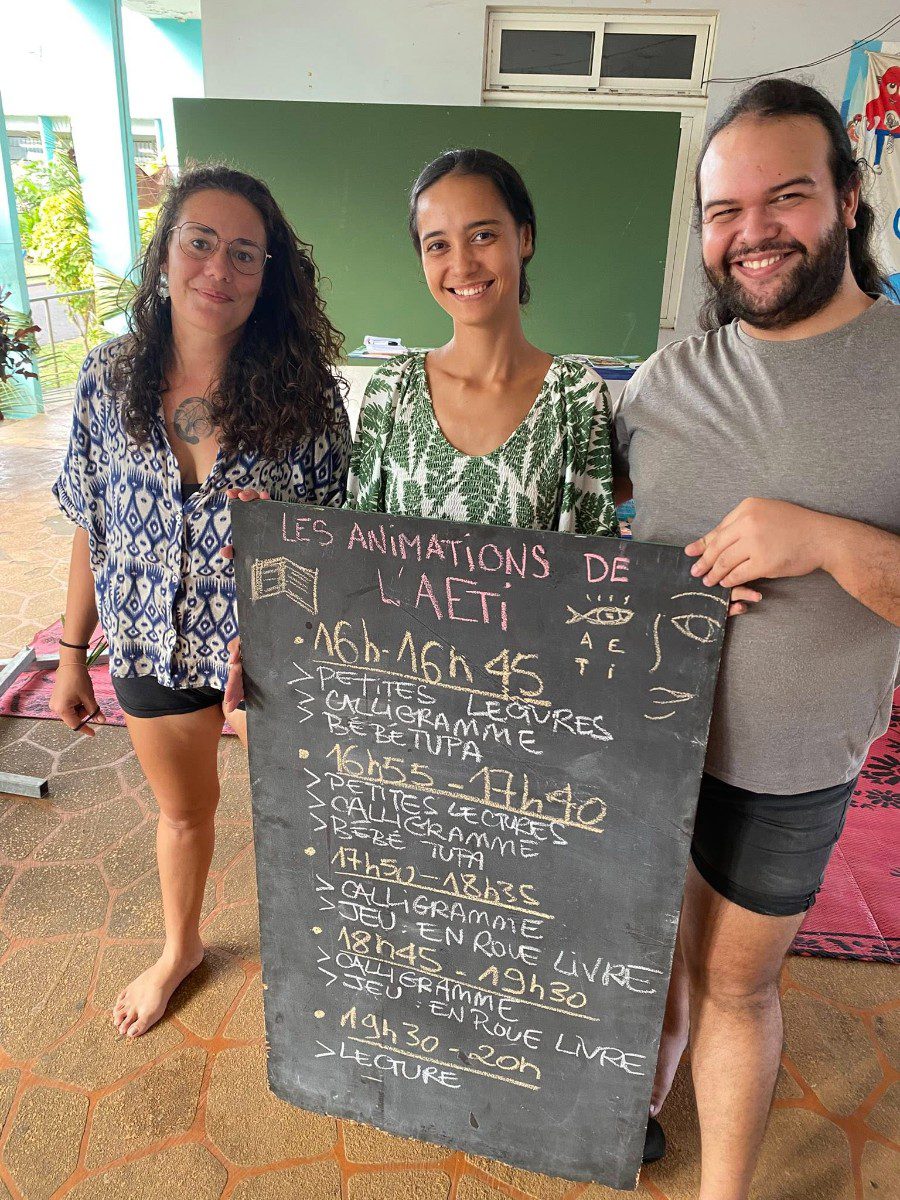 LES ANIMATIONS DE
L'AETi
A E
T i
16h-16h45
> PETITES LECTURES
> CALLIGRAMME
> BÉBÉ TUPA
16h55-17h40
> PETITES LECTURES
> CALLIGRAMME
> BÉBÉ TUPA
17h50-18h35
> CALLIGRAMME
> JEU : EN ROUE LIVRE
18h45-19h30
> CALLIGRAMME
> JEU : EN ROUE LIVRE
19h30-20h
> LECTURE